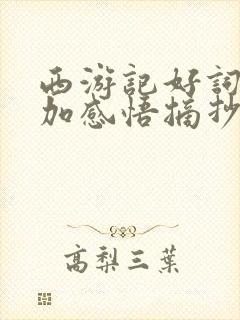 西游記好詞
加感悟摘抄
高梨三葉